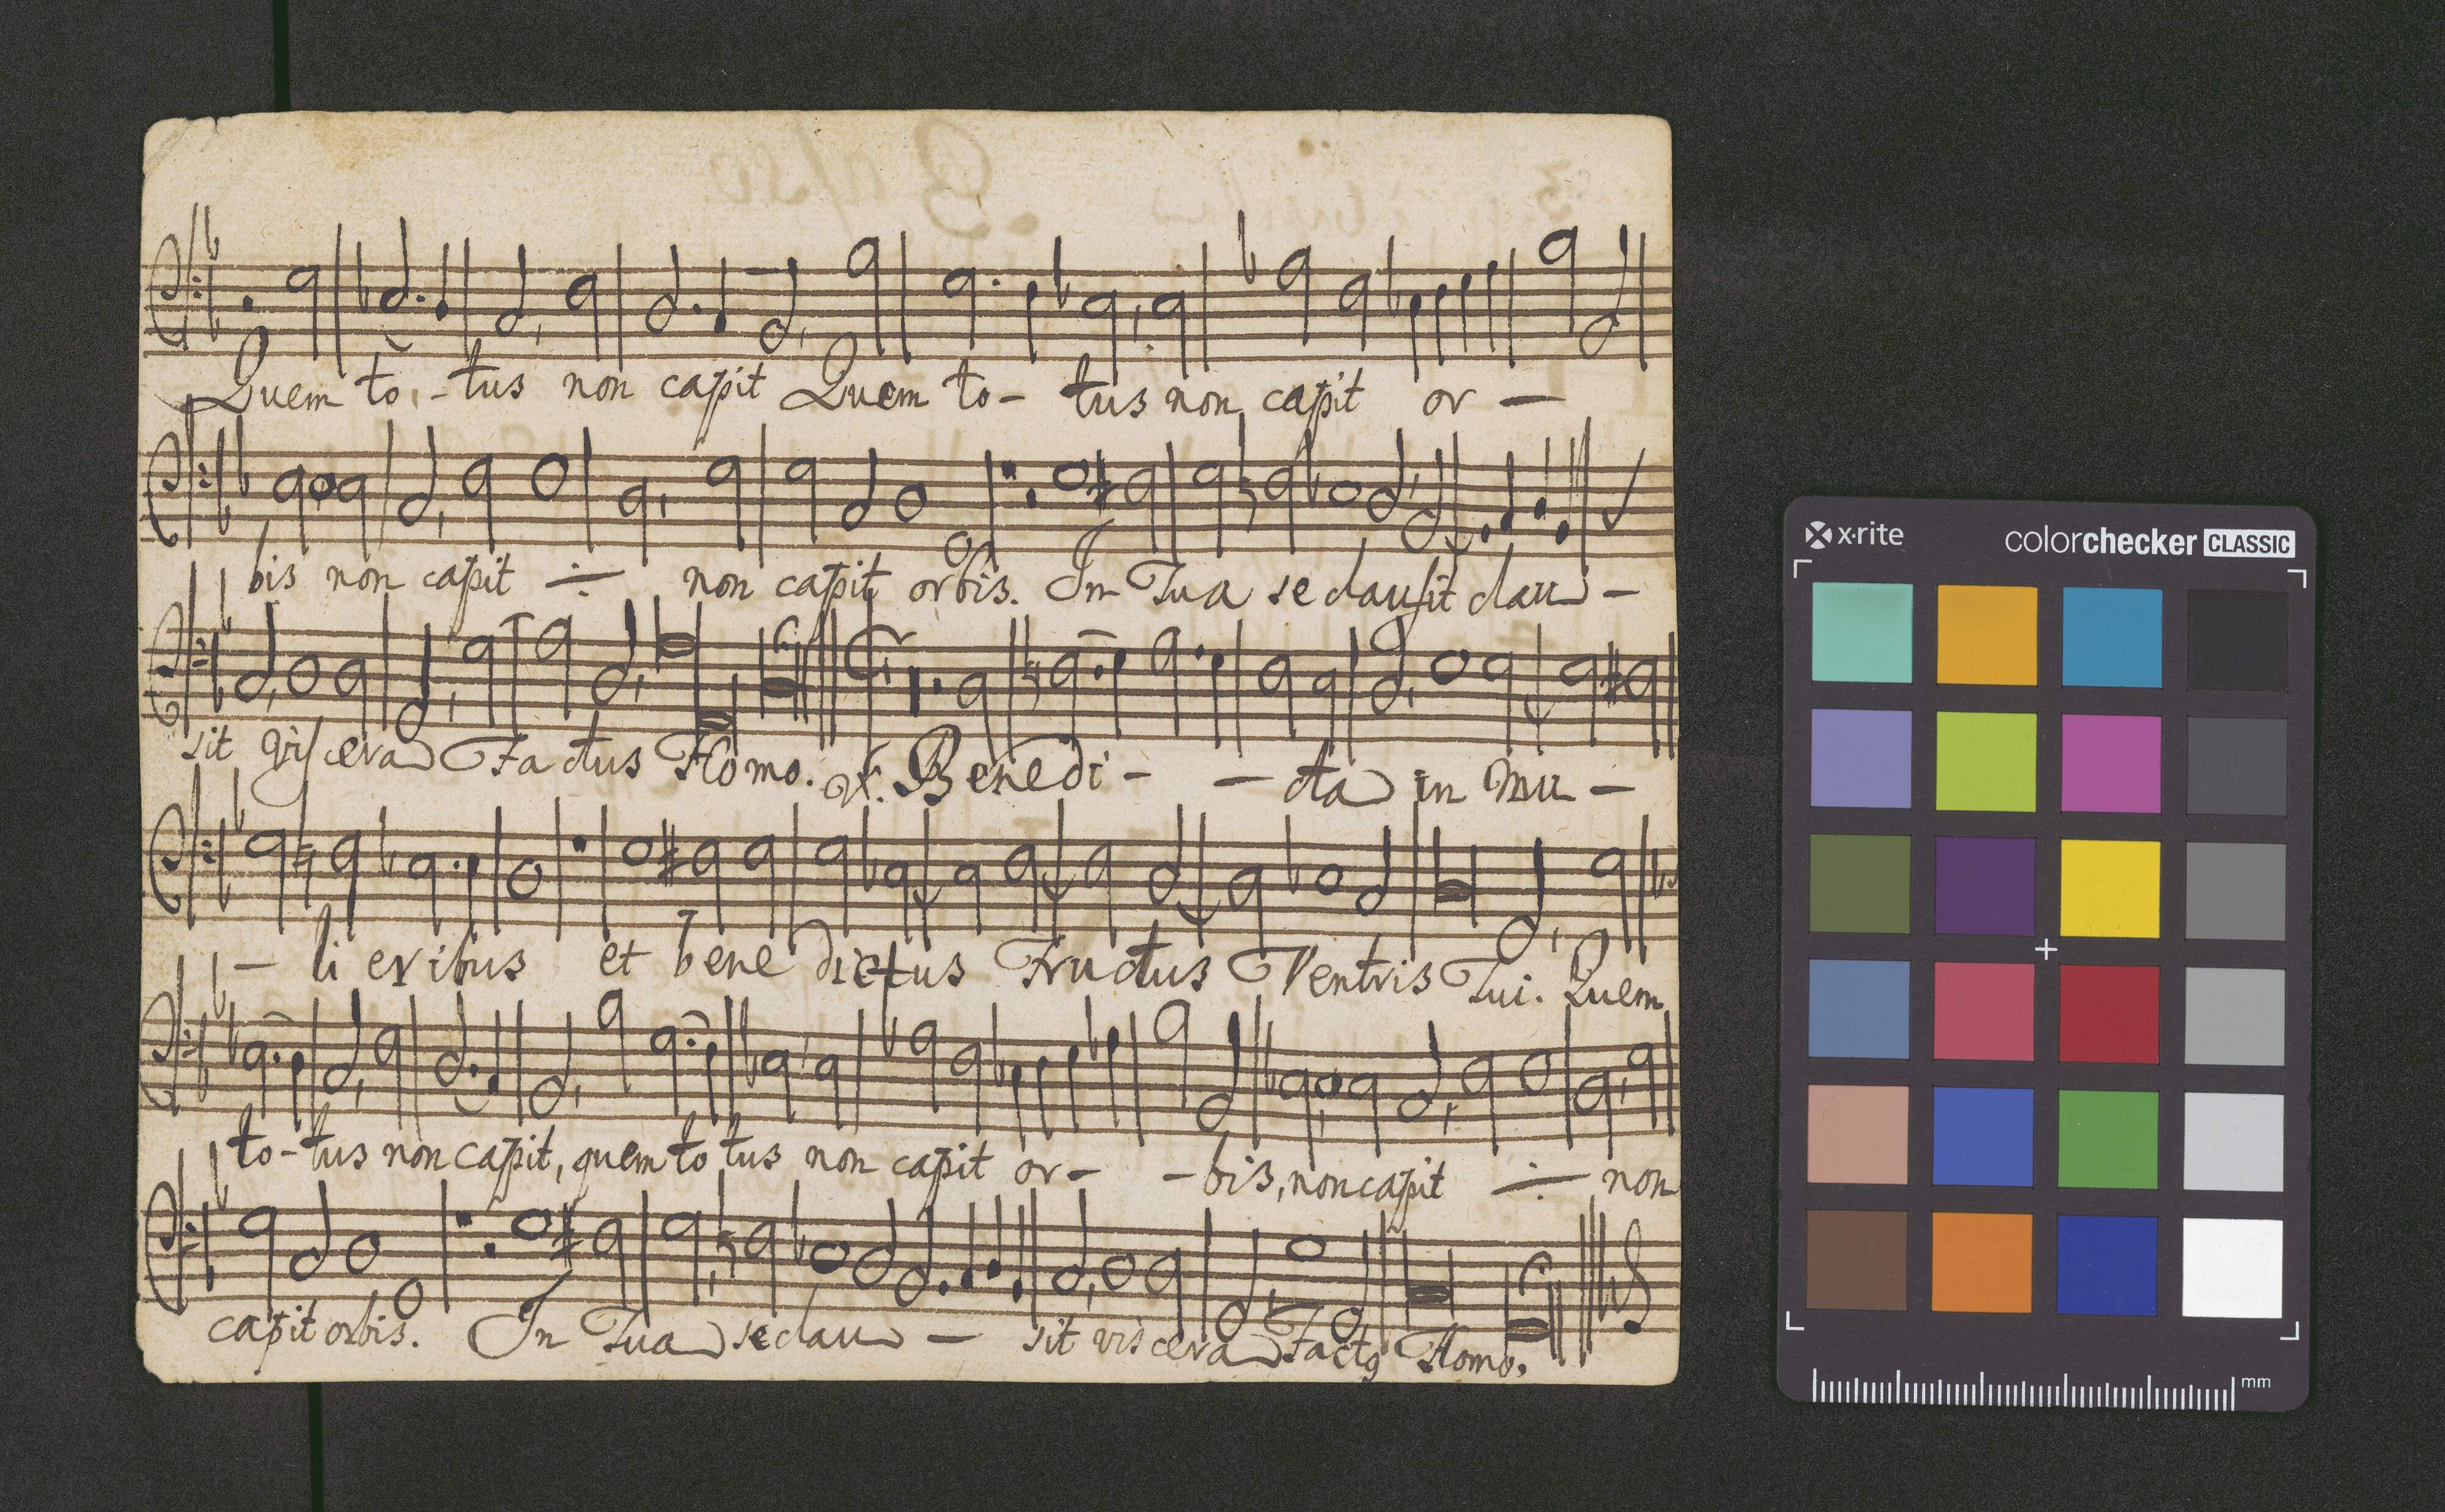 Quem to - tus non capit Quem to - tus non capit or -
bis non capit ÷ non capit orbis. In Tua se clausit clau -
sit viscera Factus Homo. ℣. Benedi - - cta in Mu -
- li eribus et bene dictus Fructus Ventris Tui. Quem
to - tus non capit, quem to tus non capit or - - bis, non capit ÷ non
capit orbis. In Tua se clau - sit viscera Factꝰ Homo.
x·rite
colorchecker CLASSIC
mm